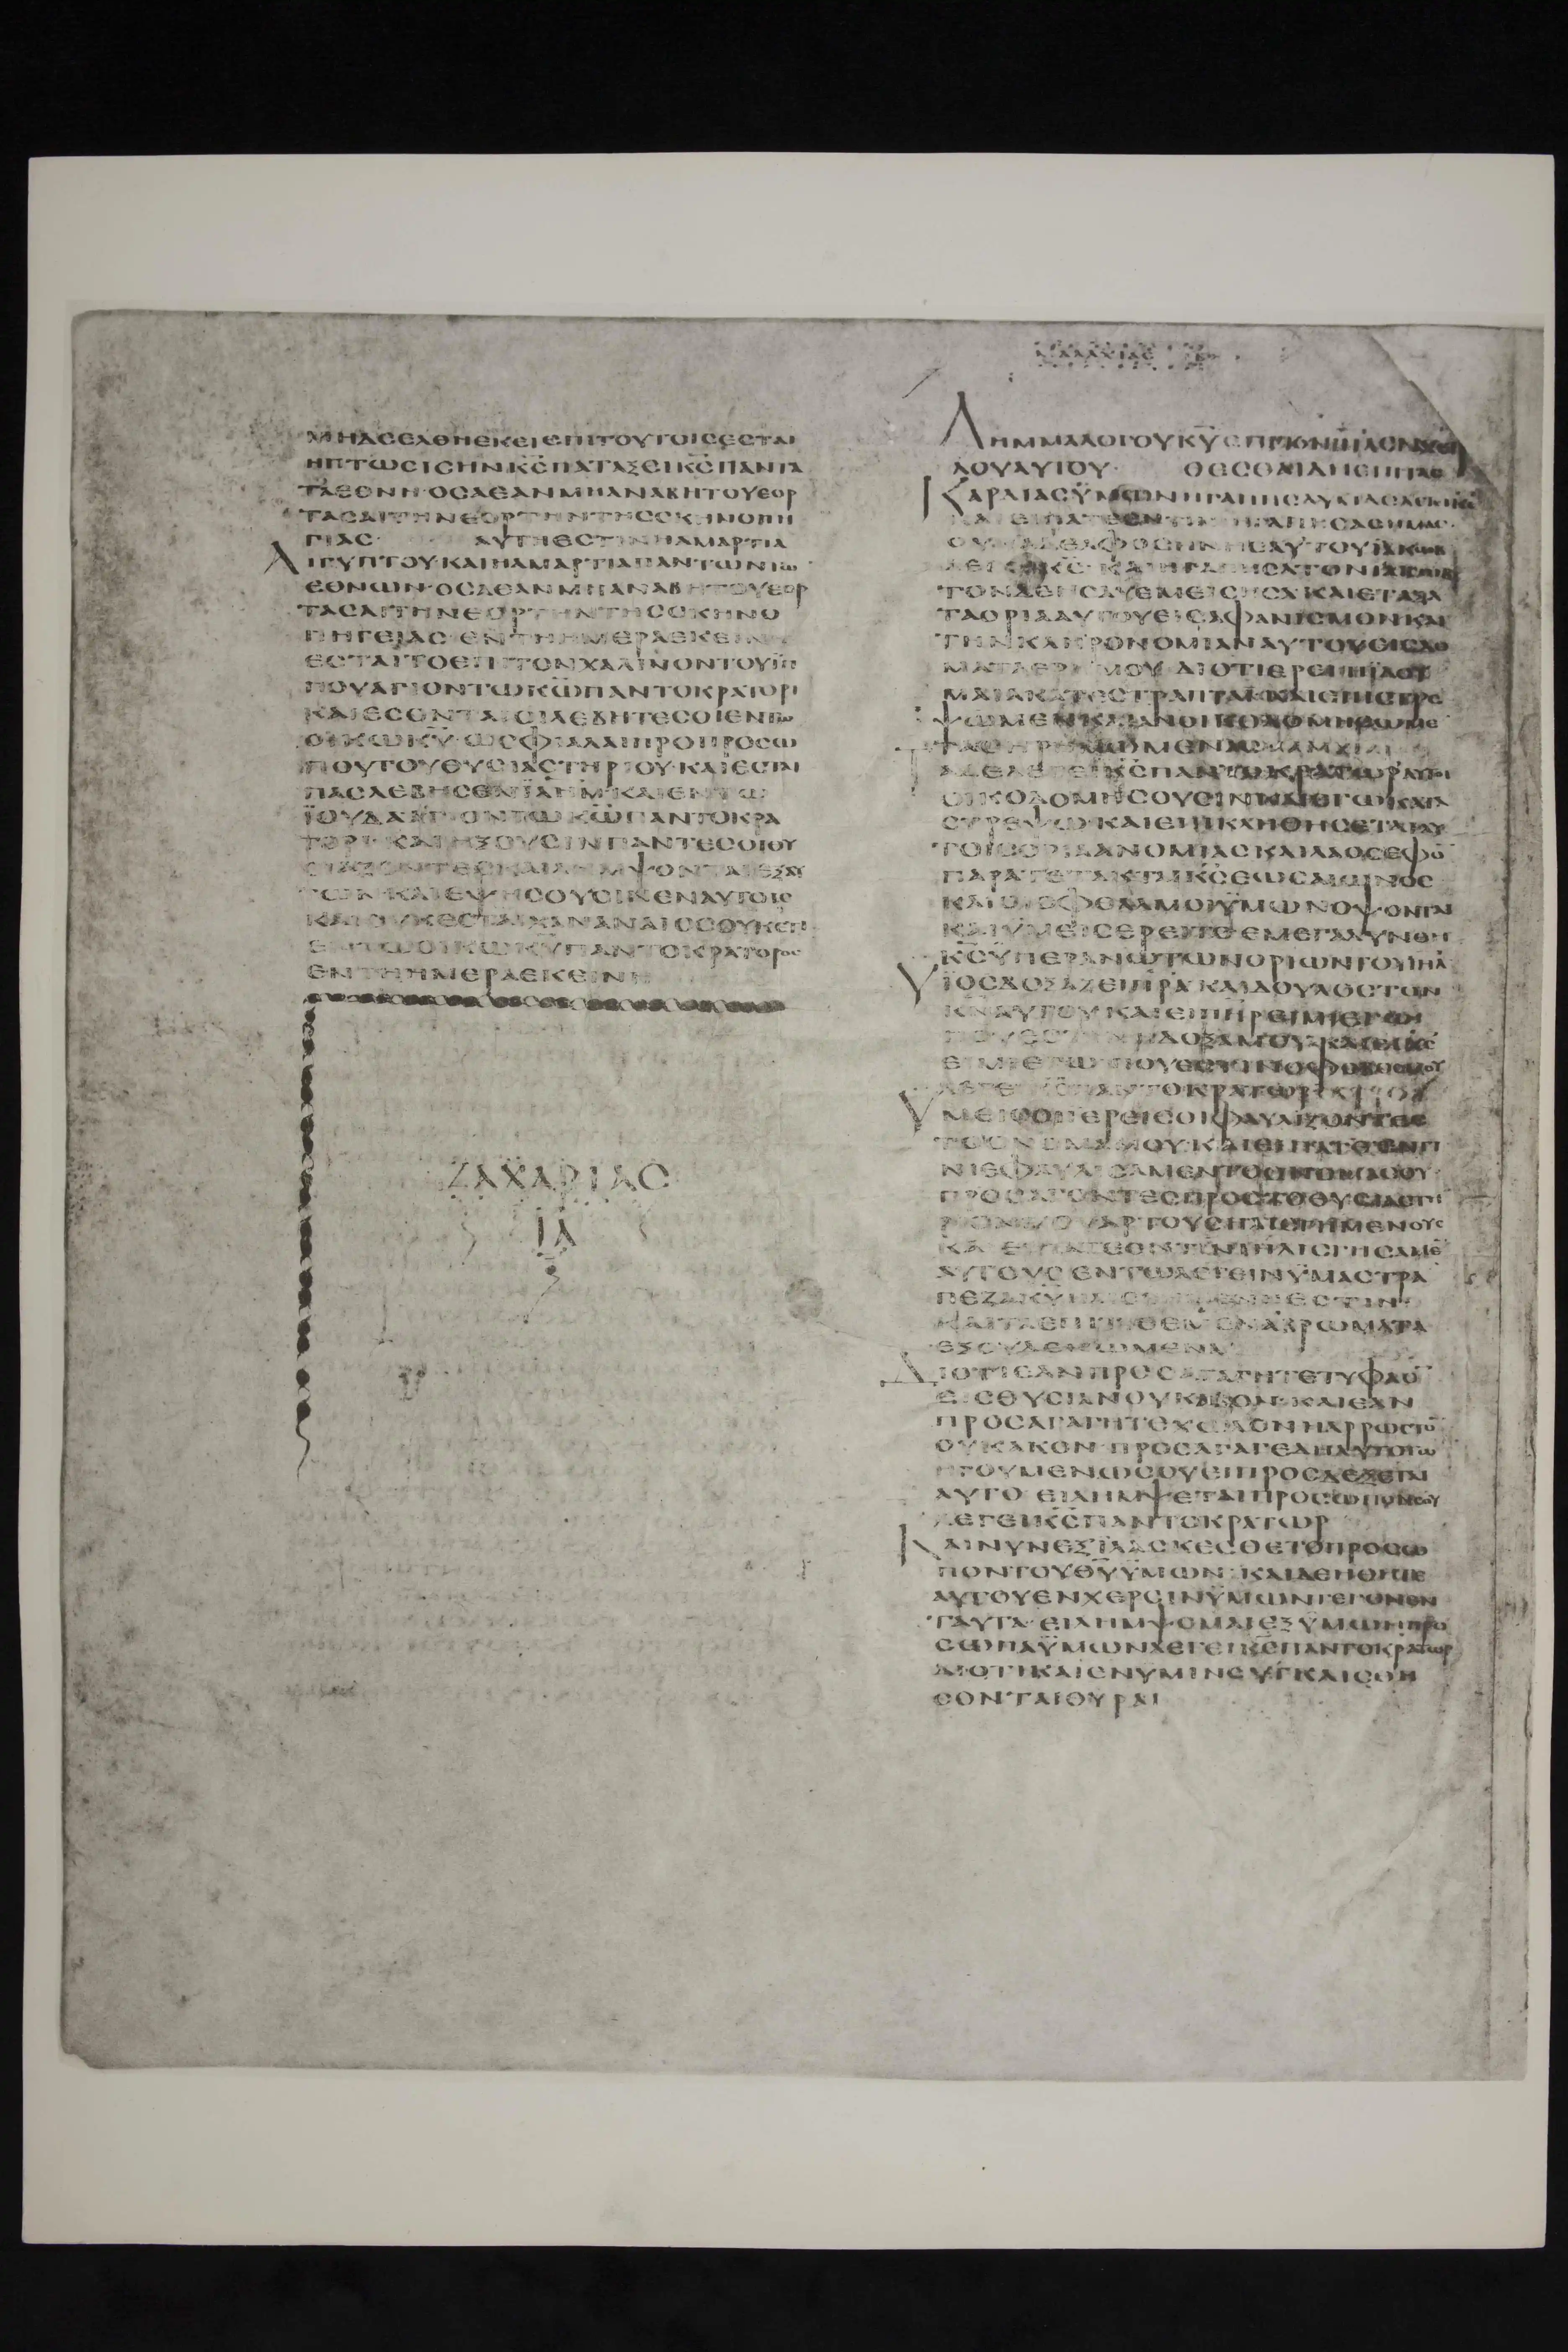 ΜΗΔΕΕΛΘΗΕΚΕΙΕΠΙΤΟΥΤΟΙΣΕΣΤΑΙ
ΗΠΤΩΣΙΣΗΝΚ̅Σ̅ΠΑΤΑΞΕΙΚ̅Σ̅ΠΑΝΤΑ
ΤΑΕΘΝΗ·ΟΣΑΕΑΝΜΗΑΝΑΒΗΤΟΥΕΟΡ
ΤΑΣΑΙΤΗΝΕΟΡΤΗΝΤΗΣΣΚΗΝΟΠΗ
ΓΙΑΣ· ΑΥΤΗΕΣΤΙΝΗΑΜΑΡΤΙΑ
ΑΙΓΥΠΤΟΥ·ΚΑΙΗΑΜΑΡΤΙΑΠΑΝΤΩΝΤΩ̅
ΕΘΝΩΝ·ΟΣΑΕΑΝΜΗΑΝΑΒΗΤΟΥΕΟΡ
ΤΑΣΑΙΤΗΝΕΟΡΤΗΝΤΗΣΣΚΗΝΟ
ΠΗΓΕΙΑΣ·ΕΝΤΗΗΜΕΡΑΕΚΕΙΝΗ
ΕΣΤΑΙΤΟΕΠΙΤΟΝΧΑΛΙΝΟΝΤΟΥΪΠ
ΠΟΥΑΓΙΟΝΤΩΚ̅Ω̅ΠΑΝΤΟΚΡΑΤΟΡΙ
ΚΑΙΕΣΟΝΤΑΙΟΙΛΕΒΗΤΕΣΟΙΕΝΤΩ
ΟΙΚΩΚ̅Υ̅·ΩΣΦΙΑΛΑΙΠΡΟΠΡΟΣΩ
ΠΟΥΤΟΥΘΥΣΙΑΣΤΗΡΙΟΥ·ΚΑΙΕΣΤΑΙ
ΠΑΣΛΕΒΗΣΕΝΙ̅Λ̅Η̅Μ̅·ΚΑΙΕΝΤΩ
ΪΟΥΔΑΑΓΙΟΝΤΩΚ̅Ω̅ΠΑΝΤΟΚΡΑ
ΤΟΡΙ·ΚΑΙΗΞΟΥΣΙΝΠΑΝΤΕΣΟΙΘΥ
ΣΙΑΖΟΝΤΕΣΚΑΙΛΗΜΨΟΝΤΑΙΕΞΑΥ
ΤΩΝ·ΚΑΙΕΨΗΣΟΥΣΙΝΕΝΑΥΤΟΙΣ
ΚΑΙΟΥΚΕΣΤΑΙΧΑΝΑΝΑΙΟΣΟΥΚΕΤΙ
ΕΝΤΩΟΙΚΩΚ̅Υ̅ΠΑΝΤΟΚΡΑΤΟΡΟΣ
ΕΝΤΗΗΜΕΡΑΕΚΕΙΝΗ
ΖΑΧΑΡΙΑΣ
ΙΑ
ΜΑΛΑΧΙΑΣ
ΛΗΜΜΑΛΟΓΟΥΚ̅Υ̅ΕΠΙΤΟΝΙ̅Η̅Λ̅ΕΝΧΕΙΡΙ
ΑΓΓΕΛΟΥΑΥΤΟΥ· ΘΕΣΘΑΙΔΗΕΠΙΤΑΣ
ΚΑΡΔΙΑΣΫΜΩΝ
ΤΑΟΡΙΑΑΥΤΟΥΕΙΣΑΦΑΝΙΣΜΟΝΚΑΙ
ΤΗΝΚΛΗΡΟΝΟΜΙΑΝΑΥΤΟΥΕΙΣΔΟ
ΜΑΤΑΕΡΗΜΟΥ·ΔΙΟΤΙΕΡΕΙΗΪΔΟΥ
ΜΑΙΑΚΑΤΕΣΤΡΑΠΤΑΙ·ΚΑΙΕΠΙΣΤΡΕ
ΨΩΜΕΝΚΑΙΑΝΟΙΚΟΔΟΜΗΣΩΜΕ̅
ΤΑΔΕΛΕΓΕΙΚ̅Σ̅ΠΑΝΤΟΚΡΑΤΩΡ·ΑΥΤΟΙ
ΟΙΚΟΔΟΜΗΣΟΥΣΙΝΚΑΙΕΓΩΚΑΤΑ
ΣΤΡΕΨΩ·ΚΑΙΕΠΙΚΛΗΘΗΣΕΤΑΙΑΥ
ΤΟΙΣΟΡΙΑΑΝΟΜΙΑΣΚΑΙΛΑΟΣΕΦΟ̅
ΠΑΡΑΤΕΤΑΚΤΑΙΚ̅Σ̅ΕΩΣΑΙΩΝΟΣ
ΚΑΙΟΙΟΦΘΑΛΜΟΙΫΜΩΝΟΨΟΝΤΑΙ
ΚΑΙΫΜΕΙΣΕΡΕΙΤΕ·ΕΜΕΓΑΛΥΝΘΗ
Κ̅Σ̅ΫΠΕΡΑΝΩΤΩΝΟΡΙΩΝΤΟΥΙ̅Η̅Λ̅
ΥΪΟΣΔΟΞΑΖΕΙΠ̅Ρ̅Α̅·ΚΑΙΔΟΥΛΟΣΤΟΝ
Κ̅Ν̅ΑΥΤΟΥ·ΚΑΙΕΙΠ̅Η̅Ρ̅ΕΙΜΙΕΓΩ
ΠΟΥΕΣΤΙΝΗΔΟΞΑΜΟΥ·ΚΑΙΕΙΚ̅Σ̅
ΕΙΜΙΕΓΩ·ΠΟΥΕΣΤΙΝΟΦΟΒΟΣΜΟΥ
ΛΕΓΕΙΚ̅Σ̅ΠΑΝΤΟΚΡΑΤΩΡ
ΥΜΕΙΣΟΙΕΡΕΙΣΟΙΦΑΥΛΙΖΟΝΤΕΣ
ΤΟΟΝΟΜΑΜΟΥ·ΚΑΙΕΙΠΑΤΕΕΝΤΙ
ΝΙΕΦΑΥΛΙΣΑΜΕΝΤΟΟΝΟΜΑΣΟΥ·
ΠΡΟΣΑΓΟΝΤΕΣΠΡΟΣΤΟΘΥΣΙΑΣΤΗ
ΡΙΟΝΜΟΥΑΡΤΟΥΣΗΛΙΣΓΗΜΕΝΟΥΣ
ΚΑΙΕΙΠΑΤΕΕΝΤΙΝΙΗΛΙΣΓΗΣΑΜΕ̅
ΑΥΤΟΥΣ·ΕΝΤΩΛΕΓΕΙΝΫΜΑΣΤΡΑ
ΠΕΖΑΚ̅Υ̅ΗΛΙΣΓΗΜΕΝΗΕΣΤΙΝ
ΚΑΙΤΑΕΠΙΤΙΘΕΜΕΝΑΒΡΩΜΑΤΑ
ΕΞΟΥΔΕΝΩΜΕΝΑ
ΔΙΟΤΙΕΑΝΠΡΟΣΑΓΑΓΗΤΕΤΥΦΛΟ̅
ΕΙΣΘΥΣΙΑΝΟΥΚΑΚΟΝ·ΚΑΙΕΑΝ
ΠΡΟΣΑΓΑΓΗΤΕΧΩΛΟΝΗΑΡΡΩΣΤΟ̅
ΟΥΚΑΚΟΝ·ΠΡΟΣΑΓΑΓΕΔΗΑΥΤΟΤΩ
ΗΓΟΥΜΕΝΩΣΟΥΕΙΠΡΟΣΔΕΞΕΤΑΙ
ΑΥΤΟ·ΕΙΛΗΜΨΕΤΑΙΠΡΟΣΩΠΟΝΣΟΥ
ΛΕΓΕΙΚ̅Σ̅ΠΑΝΤΟΚΡΑΤΩΡ
ΚΑΙΝΥΝΕΞΙΛΑΣΚΕΣΘΕΤΟΠΡΟΣΩ
ΠΟΝΤΟΥΘ̅Υ̅ΫΜΩΝ·ΚΑΙΔΕΗΘΗΤΕ
ΑΥΤΟΥΕΝΧΕΡΣΙΝΫΜΩΝΓΕΓΟΝΕΝ
ΤΑΥΤΑ·ΕΙΛΗΜΨΟΜΑΙΕΞΫΜΩΝΠΡΟ
ΣΩΠΑΫΜΩΝΛΕΓΕΙΚ̅Σ̅ΠΑΝΤΟΚΡΑΤΩΡ
ΔΙΟΤΙΚΑΙΕΝΥΜΙΝΣΥΓΚΛΙΣΘΗ
ΣΟΝΤΑΙΘΥΡΑΙ